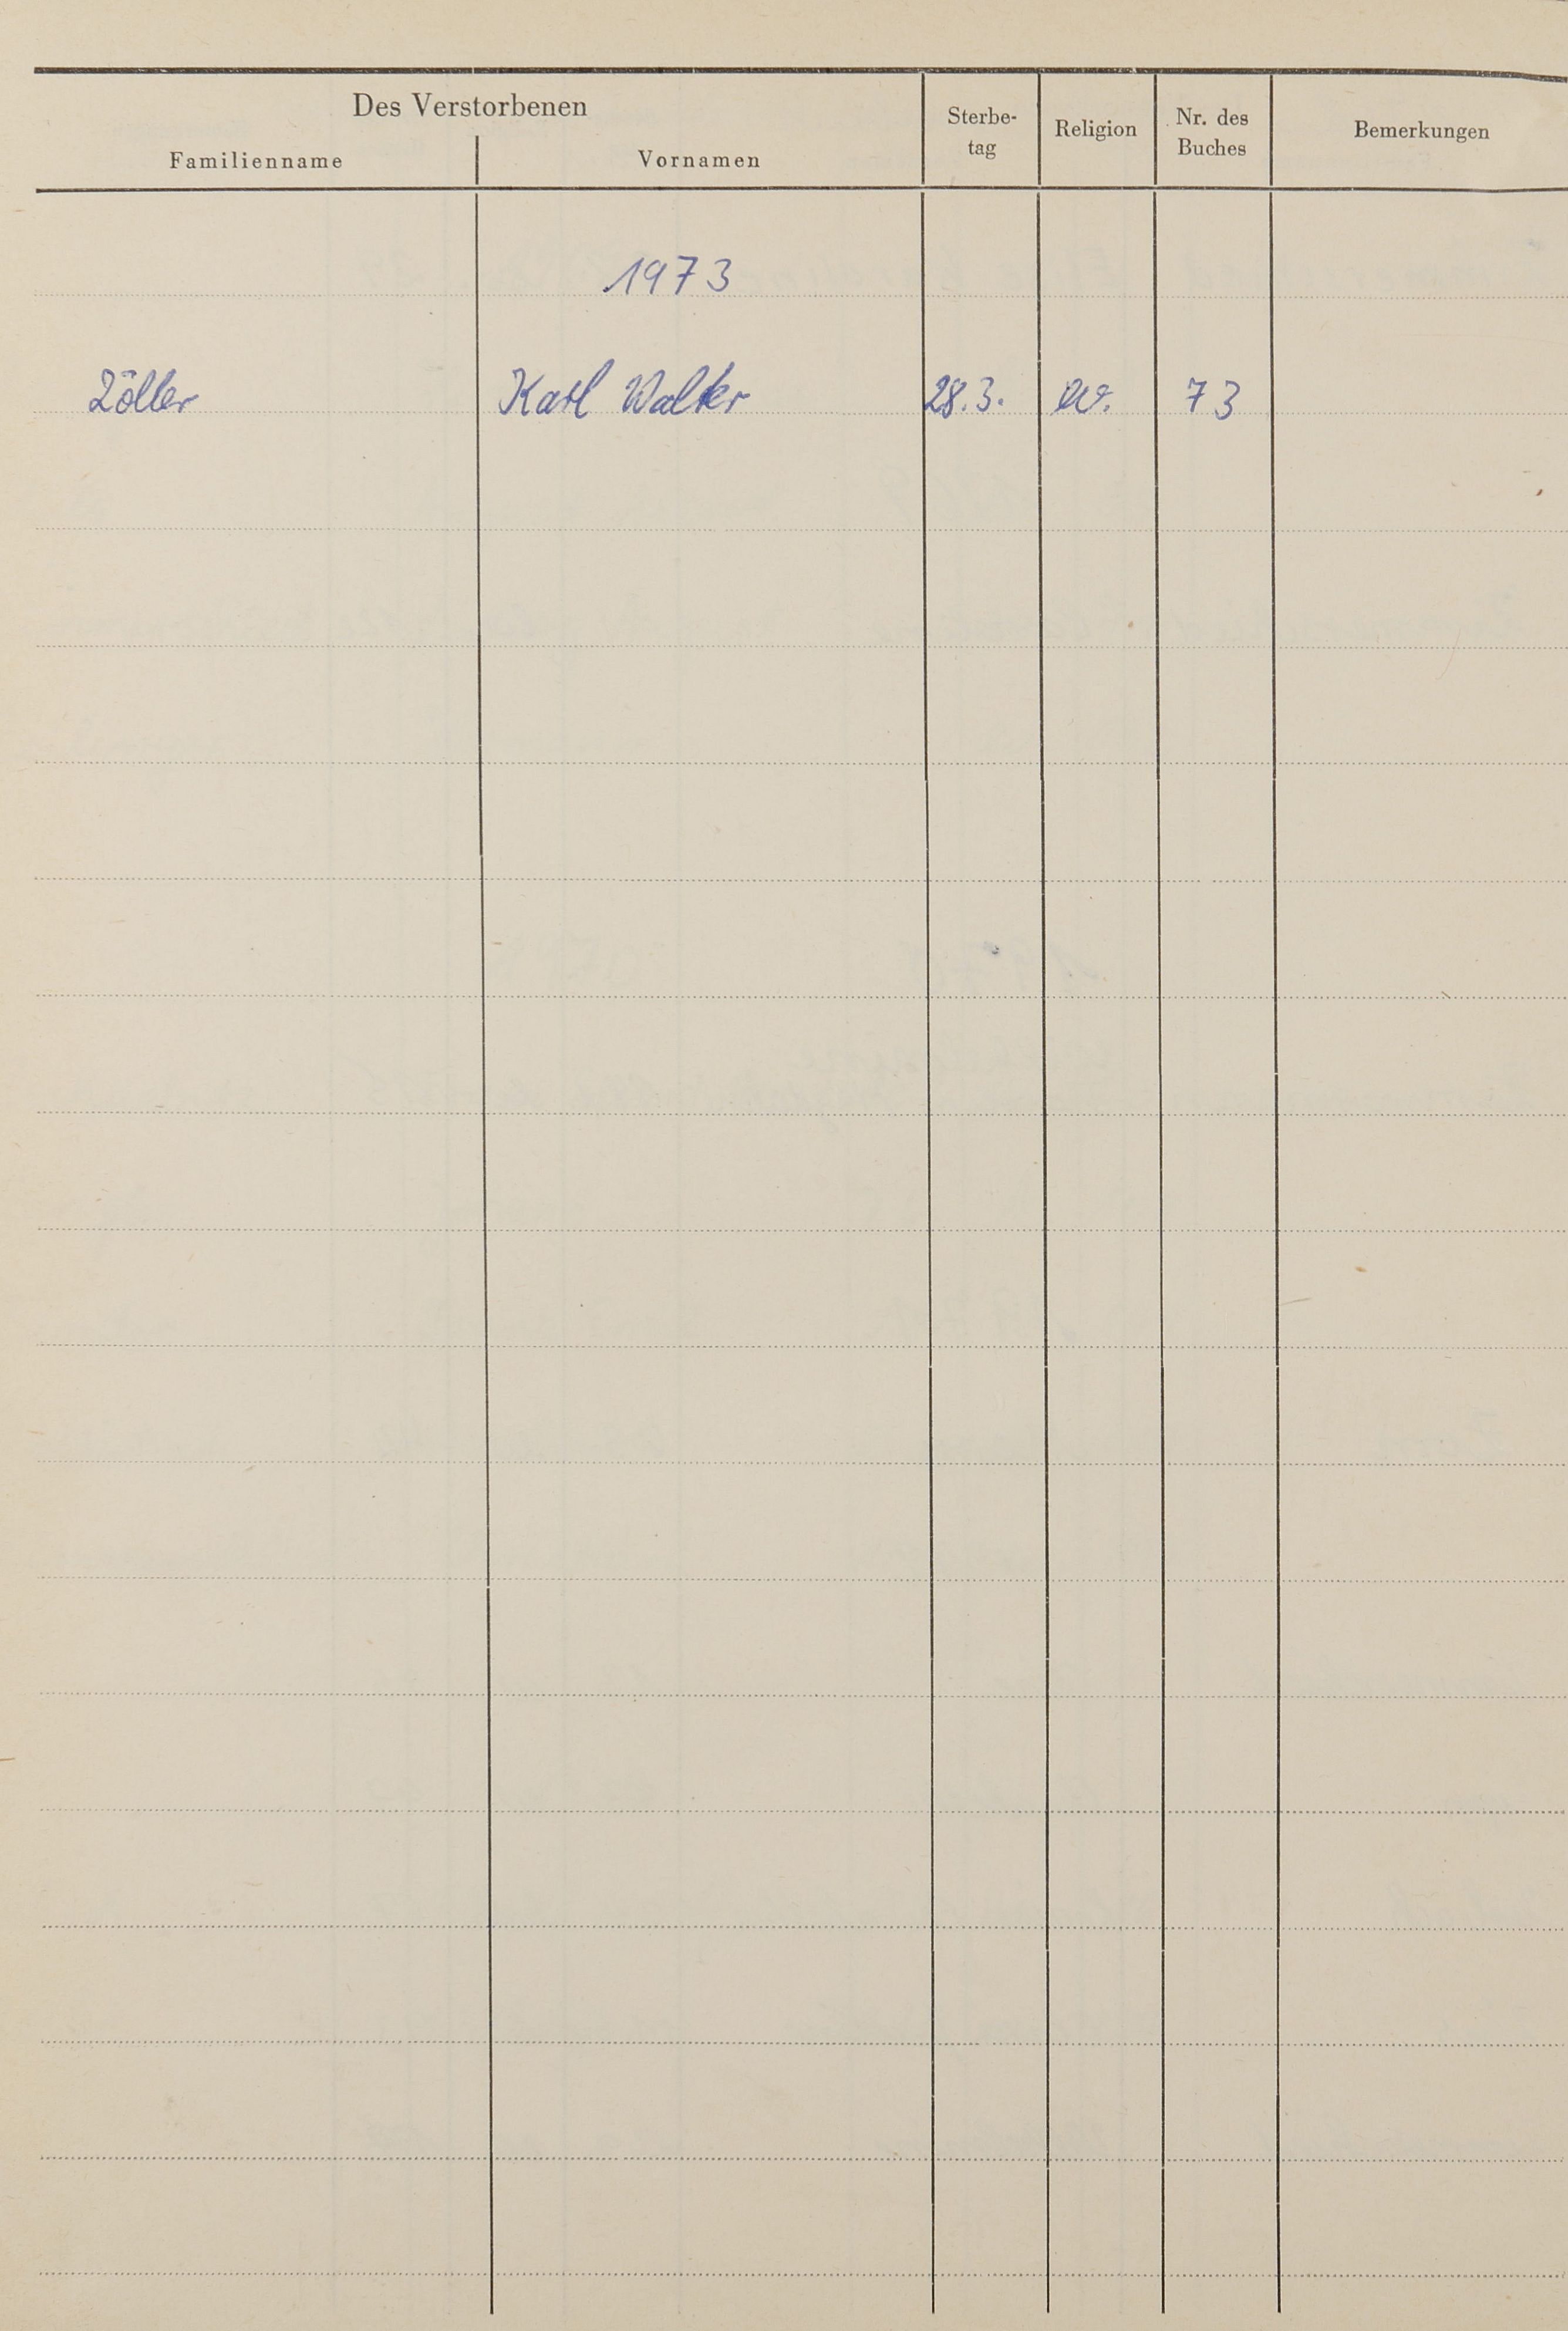 Des Verstorbenen
Familienname Vornamen Sterbe-
tag Religion Nr. des
Buches Bemerkungen
1973
Zöller Karl Walter 28.3. ev. 73